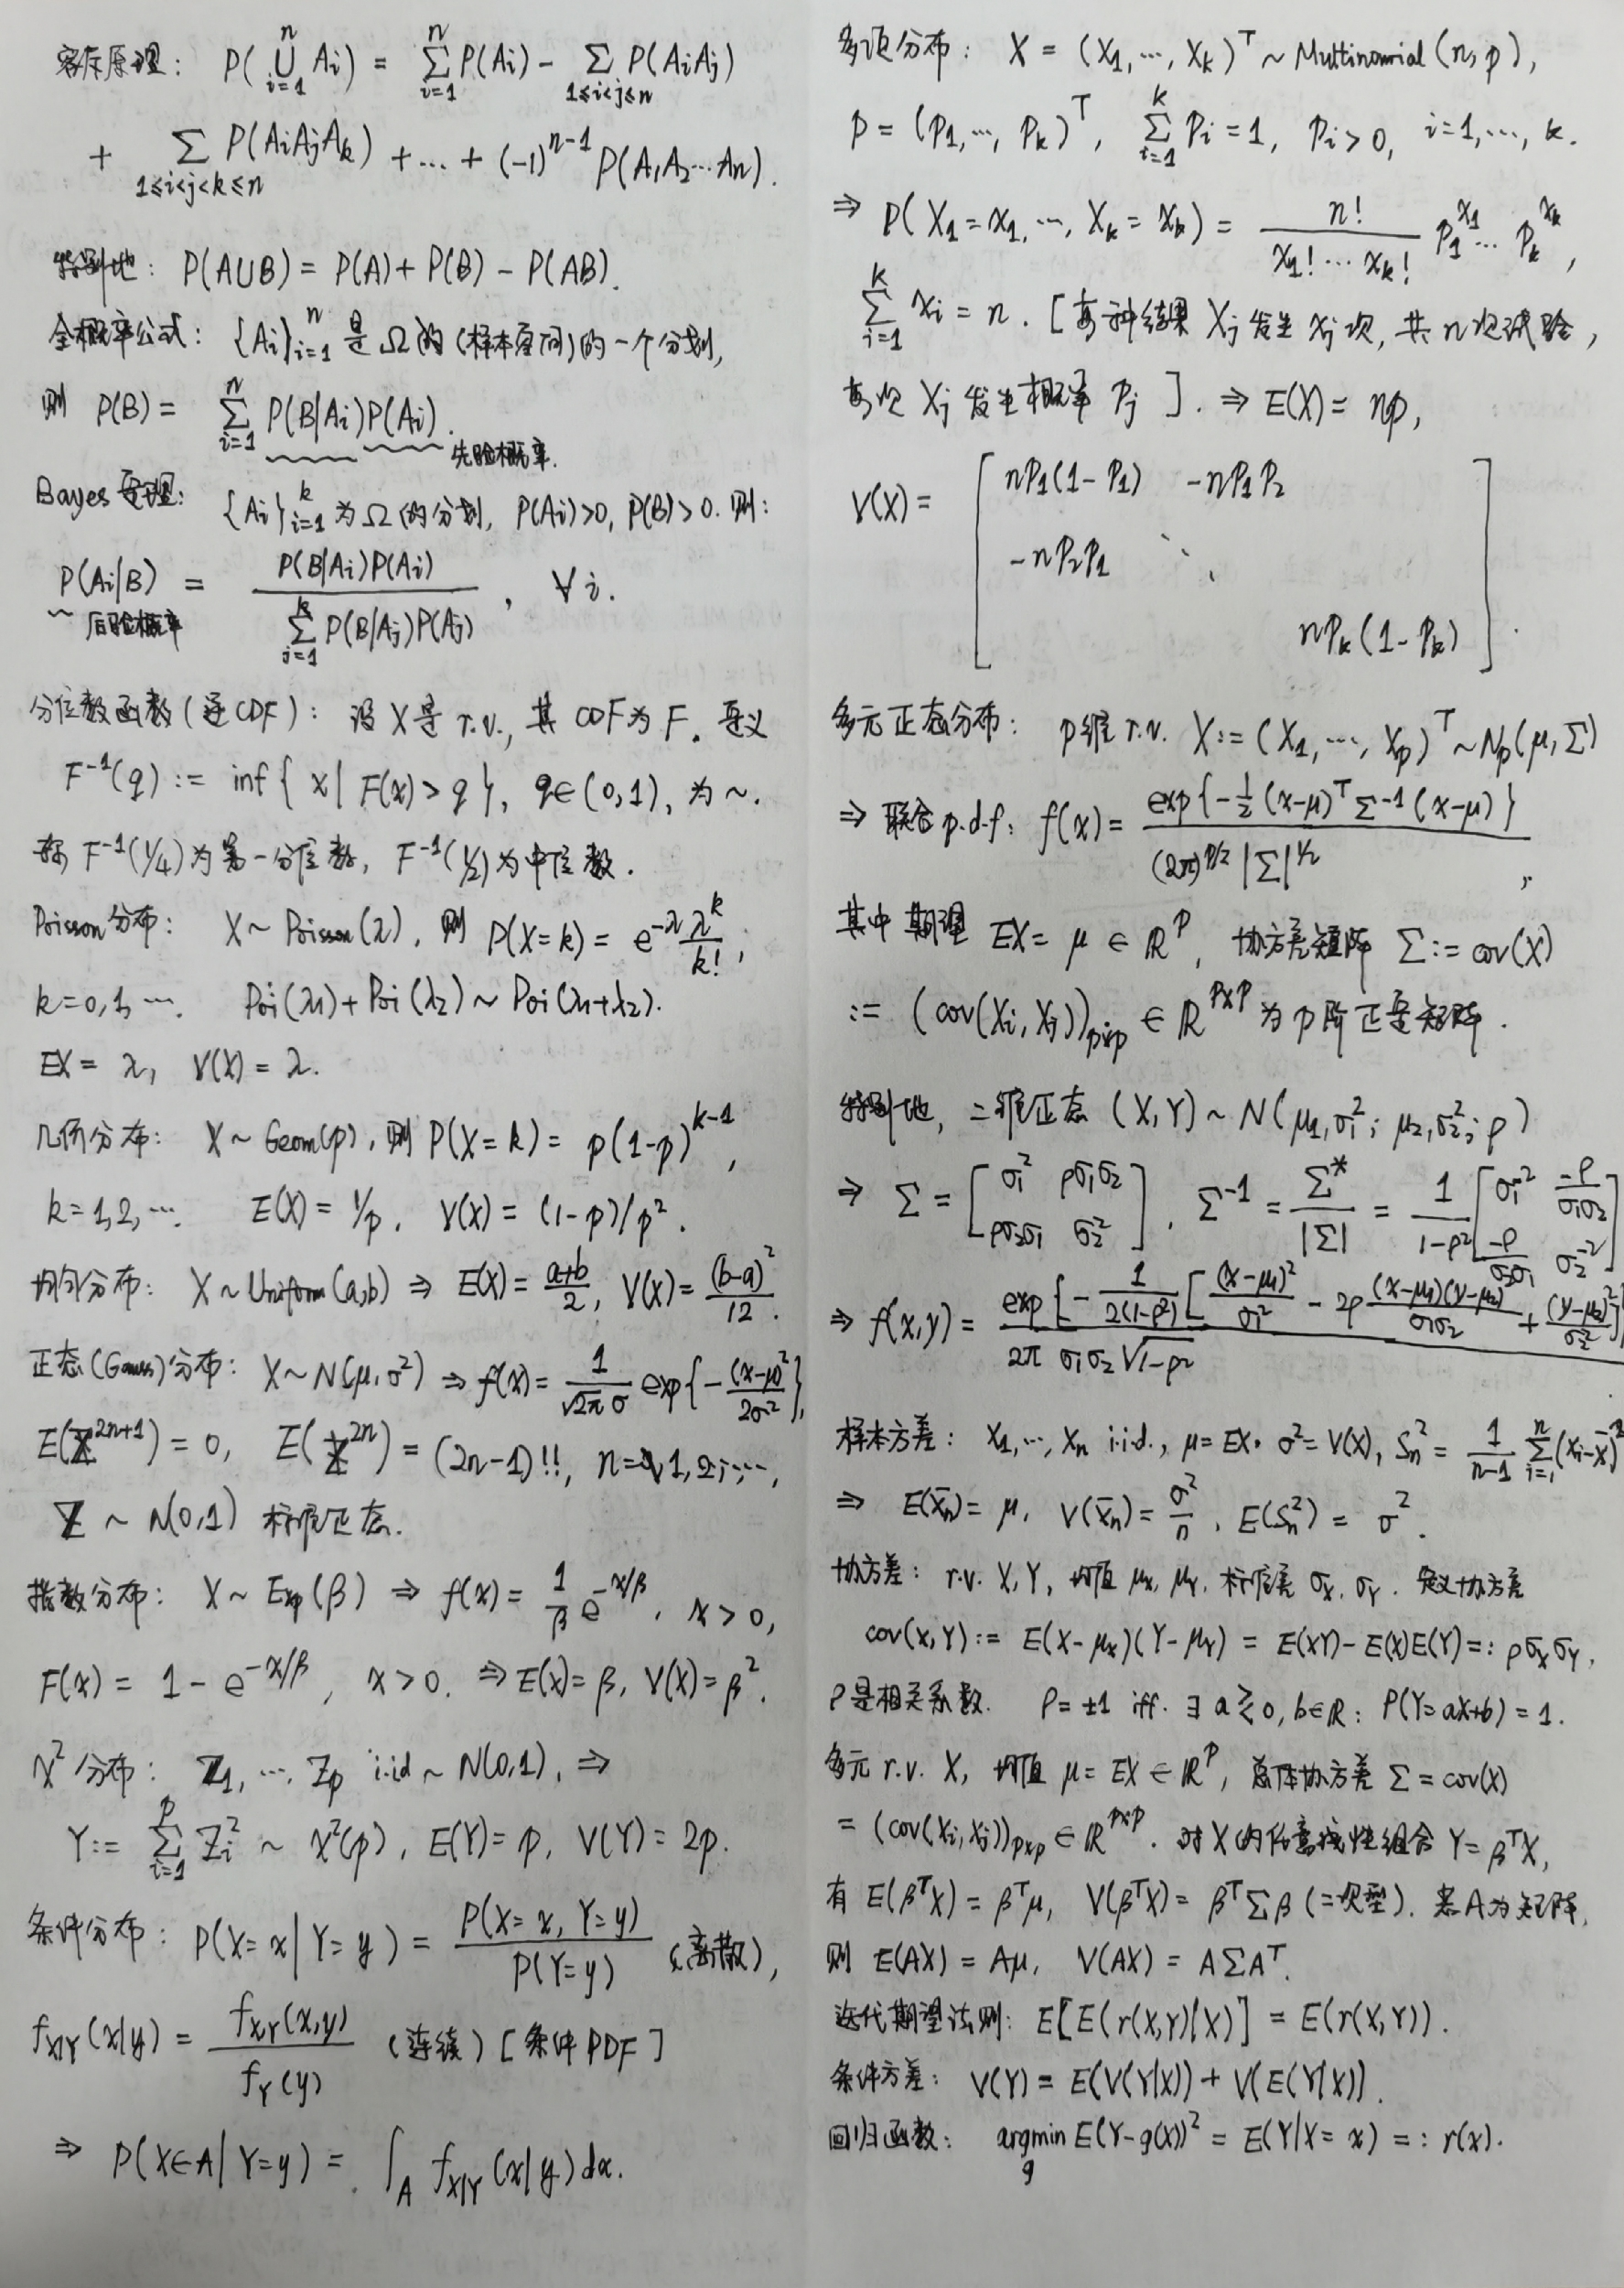 容斥原理: P(⋃_{i=1}^n A_i) = Σ_{i=1}^n P(A_i) - Σ_{1≤i<j≤n} P(A_iA_j)
+ Σ_{1≤i<j<k≤n} P(A_iA_jA_k) + ... + (-1)^{n-1} P(A_1A_2…A_n).
特别地: P(A∪B) = P(A) + P(B) - P(AB).
全概率公式: {A_i}_{i=1}^n 是Ω的(样本空间)的一个分划,
则 P(B) = Σ_{i=1}^n P(B|A_i)P(A_i).
先验概率.
Bayes定理: {A_i}_{i=1}^k 为Ω的分划, P(A_i)>0, P(B)>0. 则:
P(A_i|B) = P(B|A_i)P(A_i) / Σ_{j=1}^k P(B|A_j)P(A_j), ∀i.
后验概率
分位数函数(逆CDF): 设X是r.v., 其CDF为F. 定义
F^{-1}(q) := inf{x | F(x) > q}, q∈(0,1), 为~.
称F^{-1}(1/4)为第一分位数, F^{-1}(1/2)为中位数.
Poisson分布: X~Poisson(λ), 则 P(X=k) = e^{-λ} λ^k/k!,
k=0,1,…. Poi(λ_1)+Poi(λ_2)~Poi(λ_1+λ_2).
EX = λ, V(X) = λ.
几何分布: X~Geom(p), 则P(X=k) = p(1-p)^{k-1},
k=1,2,…. E(X) = 1/p, V(X) = (1-p)/p².
均匀分布: X~Uniform(a,b) ⇒ E(X) = (a+b)/2, V(X) = (b-a)²/12.
正态(Gauss)分布: X~N(μ,σ²) ⇒ f(x) = 1/(√2π σ) exp{-(x-μ)²/2σ²},
E(Z^{2n+1}) = 0, E(Z^{2n}) = (2n-1)!!, n=1,2,…,
Z ~ N(0,1) 标准正态.
指数分布: X~Exp(β) ⇒ f(x) = 1/β e^{-x/β}, x>0,
F(x) = 1-e^{-x/β}, x>0. ⇒ E(X)=β, V(X)=β².
χ²分布: Z_1,…,Z_p i.i.d ~ N(0,1), ⇒
Y := Σ_{i=1}^p Z_i² ~ χ²(p), E(Y)=p, V(Y)=2p.
条件分布: P(X=x|Y=y) = P(X=x, Y=y)/P(Y=y) (离散),
f_{X|Y}(x|y) = f_{X,Y}(x,y)/f_Y(y) (连续) [条件PDF]
⇒ P(X∈A|Y=y) = ∫_A f_{X|Y}(x|y)dx.
多项分布: X = (X_1,…,X_k)^T ~ Multinomial(n,p),
p = (p_1,…,p_k)^T, Σ_{i=1}^k p_i = 1, p_i>0, i=1,…,k.
⇒ P(X_1=x_1,…,X_k=x_k) = n!/(x_1!…x_k!) p_1^{x_1}…p_k^{x_k},
Σ_{i=1}^k x_i = n. [每种结果X_j发生x_j次, 共n次试验,
每次X_j发生概率p_j]. ⇒ E(X) = np,
V(X) = [ np_1(1-p_1) -np_1p_2
-np_2p_1 ⋱
np_k(1-p_k) ].
多元正态分布: p维r.v. X := (X_1,…,X_p)^T ~ N_p(μ,Σ)
⇒ 联合p.d.f: f(x) = exp{-1/2 (x-μ)^T Σ^{-1} (x-μ)} / ((2π)^{p/2} |Σ|^{1/2}),
其中期望 EX = μ ∈ ℝ^p, 协方差矩阵 Σ := cov(X)
:= (cov(X_i,X_j))_{p×p} ∈ ℝ^{p×p} 为p阶正定矩阵.
特别地, 二维正态 (X,Y) ~ N(μ_1,σ_1²; μ_2,σ_2²; ρ)
⇒ Σ = [σ_1² ρσ_1σ_2; ρσ_2σ_1 σ_2²], Σ^{-1} = Σ*/|Σ| = 1/(1-ρ²) [σ_1^{-2} -ρ/(σ_1σ_2); -ρ/(σ_2σ_1) σ_2^{-2}]
⇒ f(x,y) = exp{-1/(2(1-ρ²)) [(x-μ_1)²/σ_1² - 2ρ (x-μ_1)(y-μ_2)/(σ_1σ_2) + (y-μ_2)²/σ_2²]} / (2π σ_1σ_2 √(1-ρ²)).
样本方差: X_1,…,X_n i.i.d., μ=EX, σ²=V(X), S_n² = 1/(n-1) Σ_{i=1}^n (X_i-X̄)²
⇒ E(X̄_n) = μ, V(X̄_n) = σ²/n, E(S_n²) = σ².
协方差: r.v. X,Y, 均值μ_X, μ_Y, 标准差σ_X, σ_Y. 定义协方差
cov(X,Y) := E(X-μ_X)(Y-μ_Y) = E(XY)-E(X)E(Y) =: ρσ_Xσ_Y,
ρ是相关系数. ρ=±1 iff. ∃a≷0, b∈ℝ: P(Y=aX+b)=1.
多元r.v. X, 均值 μ=EX∈ℝ^p, 总体协方差 Σ=cov(X)
= (cov(X_i,X_j))_{p×p} ∈ ℝ^{p×p}. 对X的任意线性组合 Y=β^TX,
有 E(β^TX) = β^Tμ, V(β^TX) = β^TΣβ (二次型). 若A为矩阵,
则 E(AX) = Aμ, V(AX) = AΣA^T.
迭代期望法则: E[E(r(X,Y)|X)] = E(r(X,Y)).
条件方差: V(Y) = E(V(Y|X)) + V(E(Y|X)).
回归函数: argmin_g E(Y-g(X))² = E(Y|X=x) =: r(x).